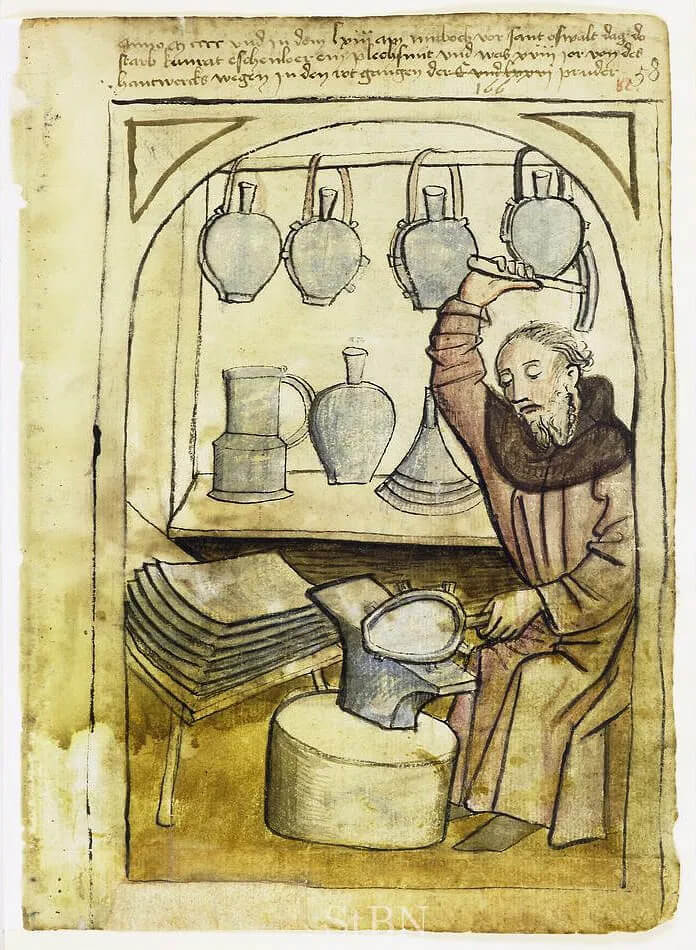 Anno m cccc vnd in dem lxiii am mitboch vor sant oswalt dag do
starb kunrat eschenloer ein plechsmit vnd was xviii jor von des
hantwercks wegen in den rot gangen der C vnd lxxxi pruder 58
166 82
StBN